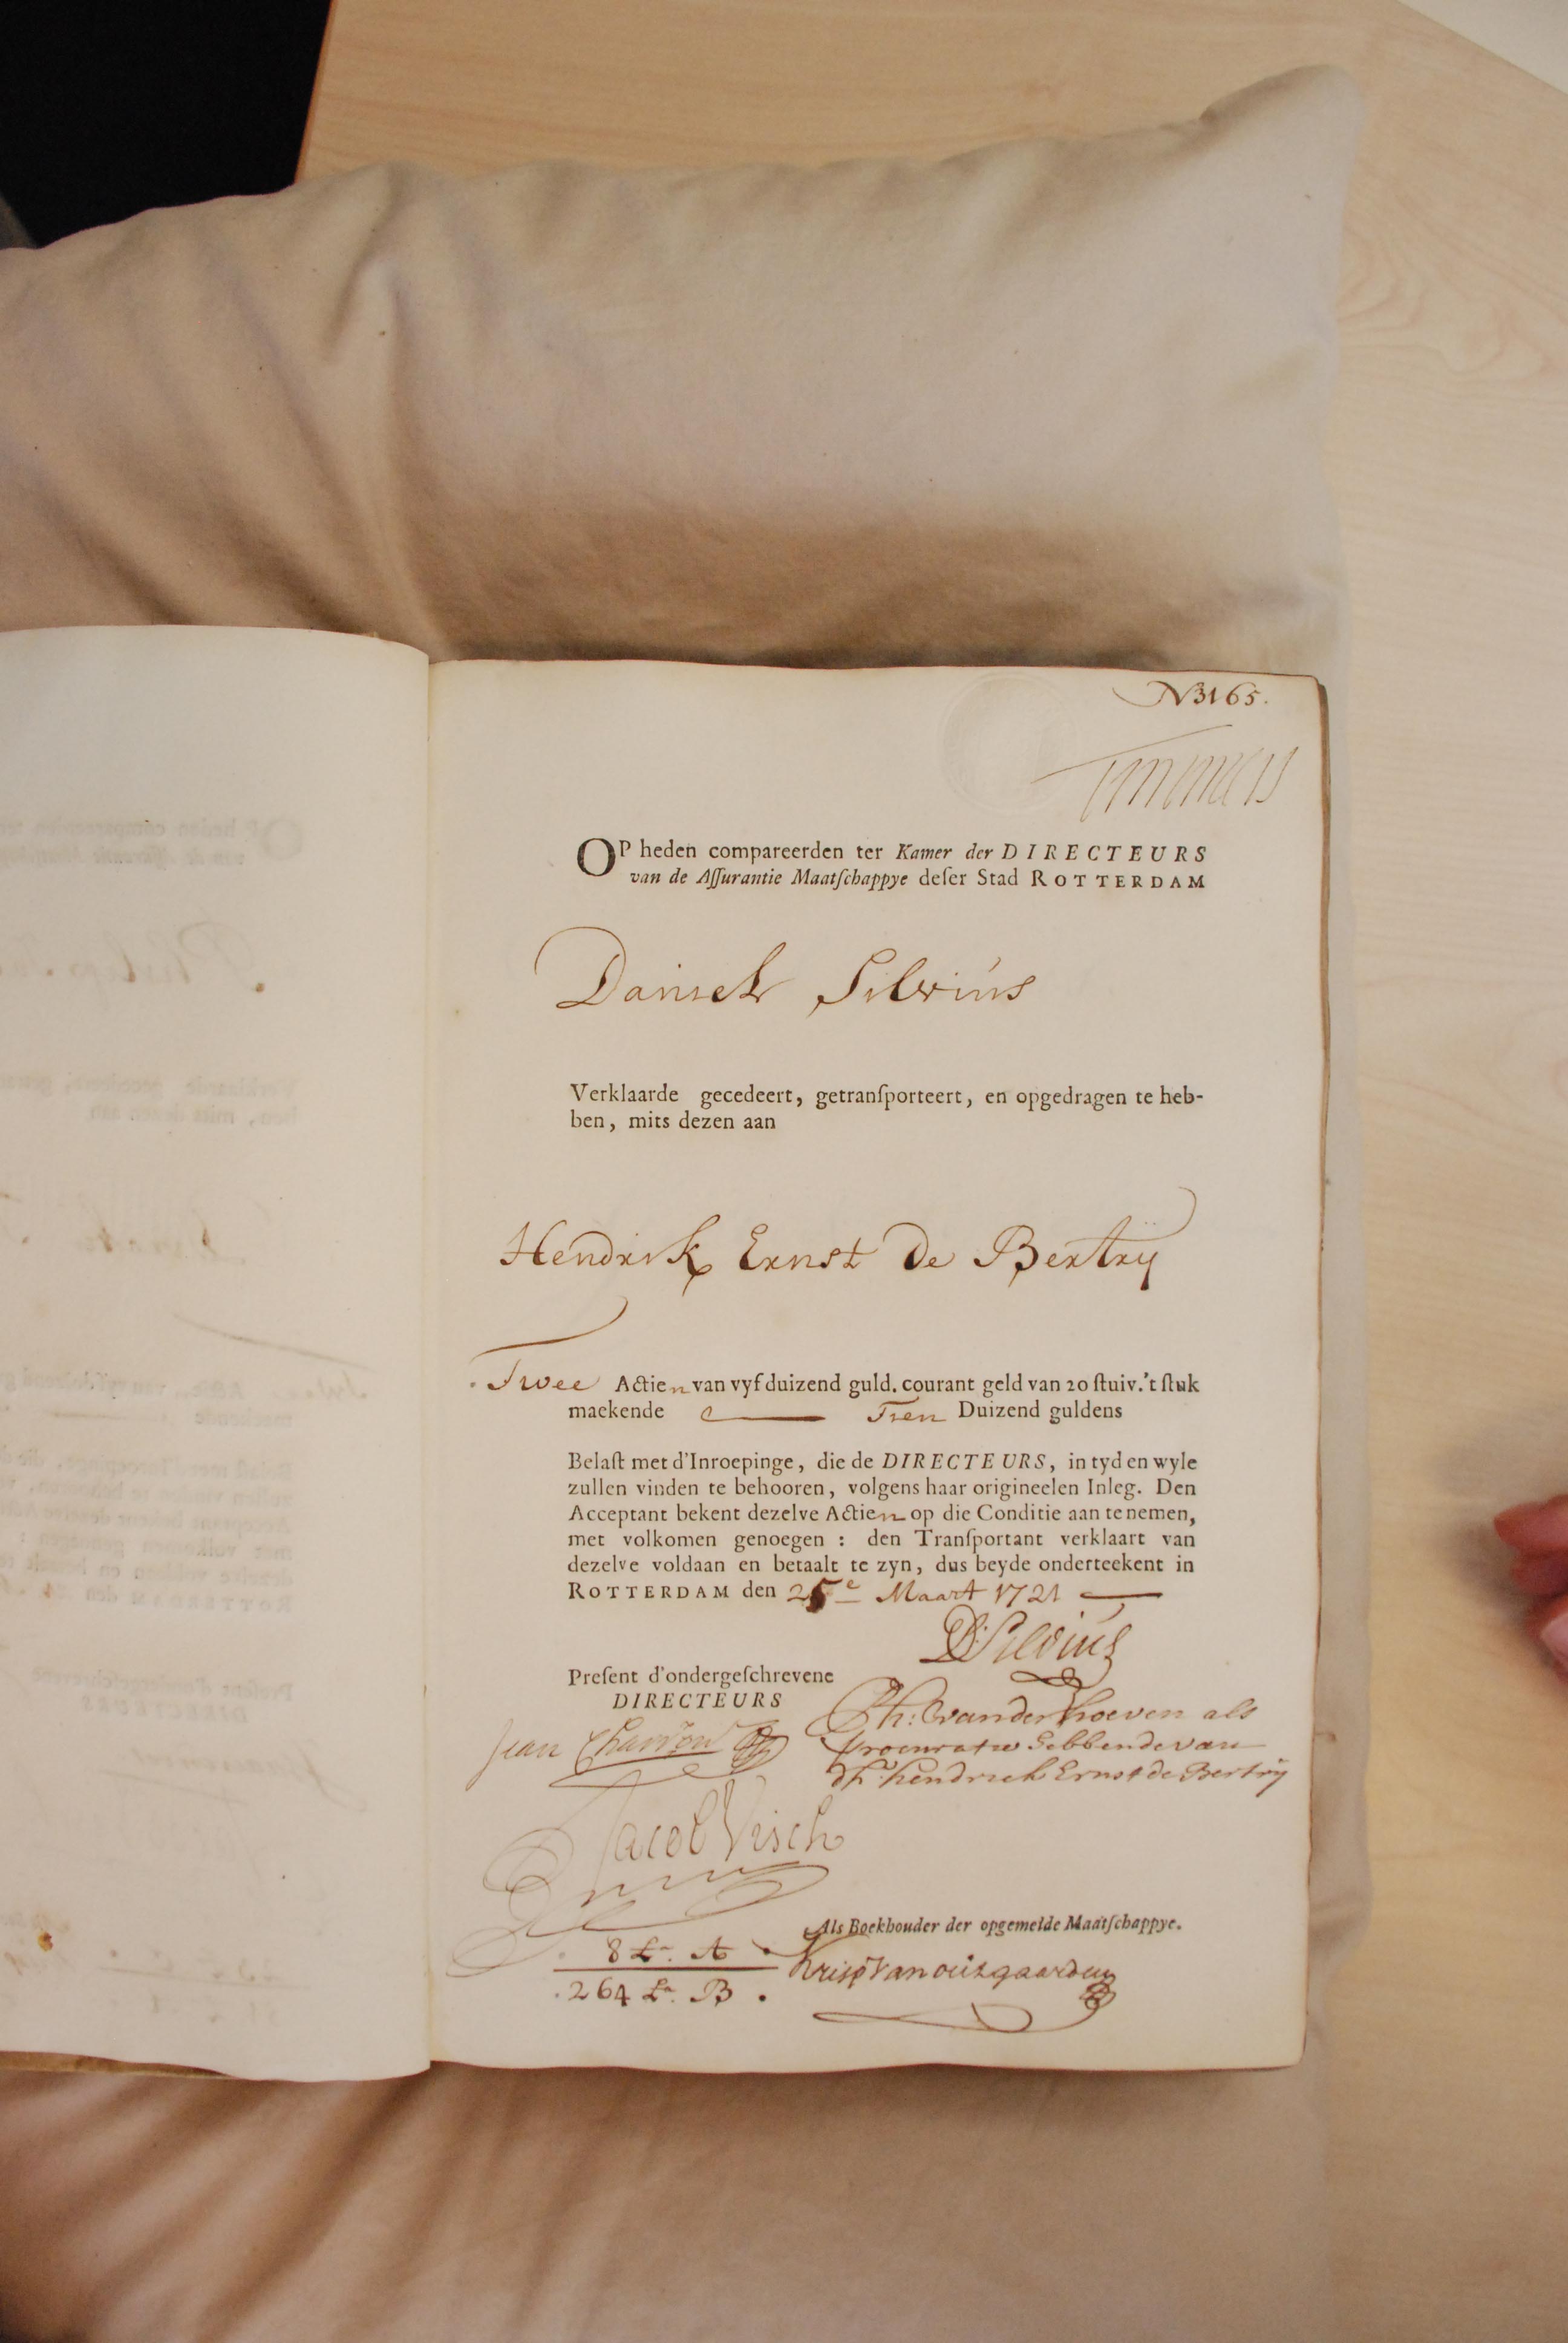 N3165.
Timmers
OP heden compareerden ter Kamer der DIRECTEURS
van de Aſſurantie Maatſchappye deſer Stad ROTTERDAM
Daniel Silvius
Verklaarde gecedeert, getranſporteert, en opgedragen te heb-
ben, mits dezen aan
Hendrik Ernst De Bertrÿ
Twee Actien van vyf duizend guld. courant geld van 20 ſtuiv. 't ſtuk
maekende Tien Duizend guldens
Belaſt met d'Inroepinge, die de DIRECTEURS, in tyd en wyle
zullen vinden te behooren, volgens haar origineelen Inleg. Den
Acceptant bekent dezelve Actien op die Conditie aan te nemen,
met volkomen genoegen : den Tranſportant verklaart van
dezelve voldaan en betaalt te zyn, dus beyde onderteekent in
ROTTERDAM den 25e Maart 1721
D: Silvius
Preſent d'ondergeſchrevene
DIRECTEURS
Ph: vander hoeven als
Jean Charron
procuratie hebbende van
dhr. hendrick Ernst de Bertrÿ
Jacob Visch
Als Boekhouder der opgemelde Maatſchappye.
8 La. A
264 La. B.